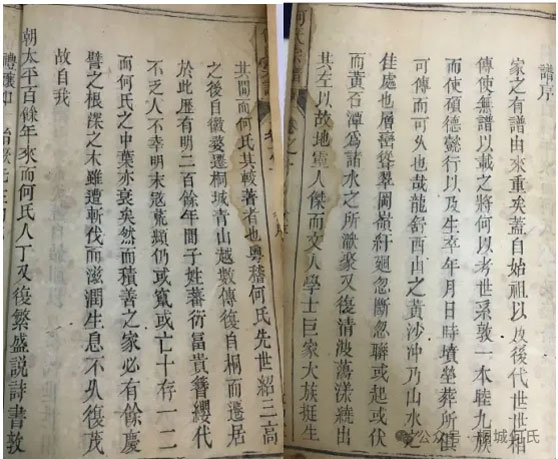 譜序
家之有譜由來重矣蓋自始祖以及後代世世相
傳使無譜以載之將何以考世系敦一本睦九族
而使碩德懿行以及生卒年月日時墳塋葬所俱
可傳而可久也哉龍舒西山之黃沙冲乃山水之
佳處也層巒聳翠關嶺紆迴忽斷忽聯或起或伏
而黃石潭為諸水之所歙聚又復清波蕩漾繞出
其左以故地靈人傑而文人學士巨家大族挺生
其間而何氏其較著者也粵稽何氏先世紹三高
之後自徽婺遷桐城青山越數傳復自桐而遷居
於此歷有明二百餘年間子姓蕃衍富貴簪纓代
不乏人不幸明末寇氛頻仍或竄或亡十存一二
而何氏之中葉亦衰矣然而積善之家必有餘慶
譬之根深之木雖遭斬伐而滋潤生息不久復茂
故自我
朝太平百餘年來而何氏人丁又復繁盛說詩書敦
公众号·桐城何氏